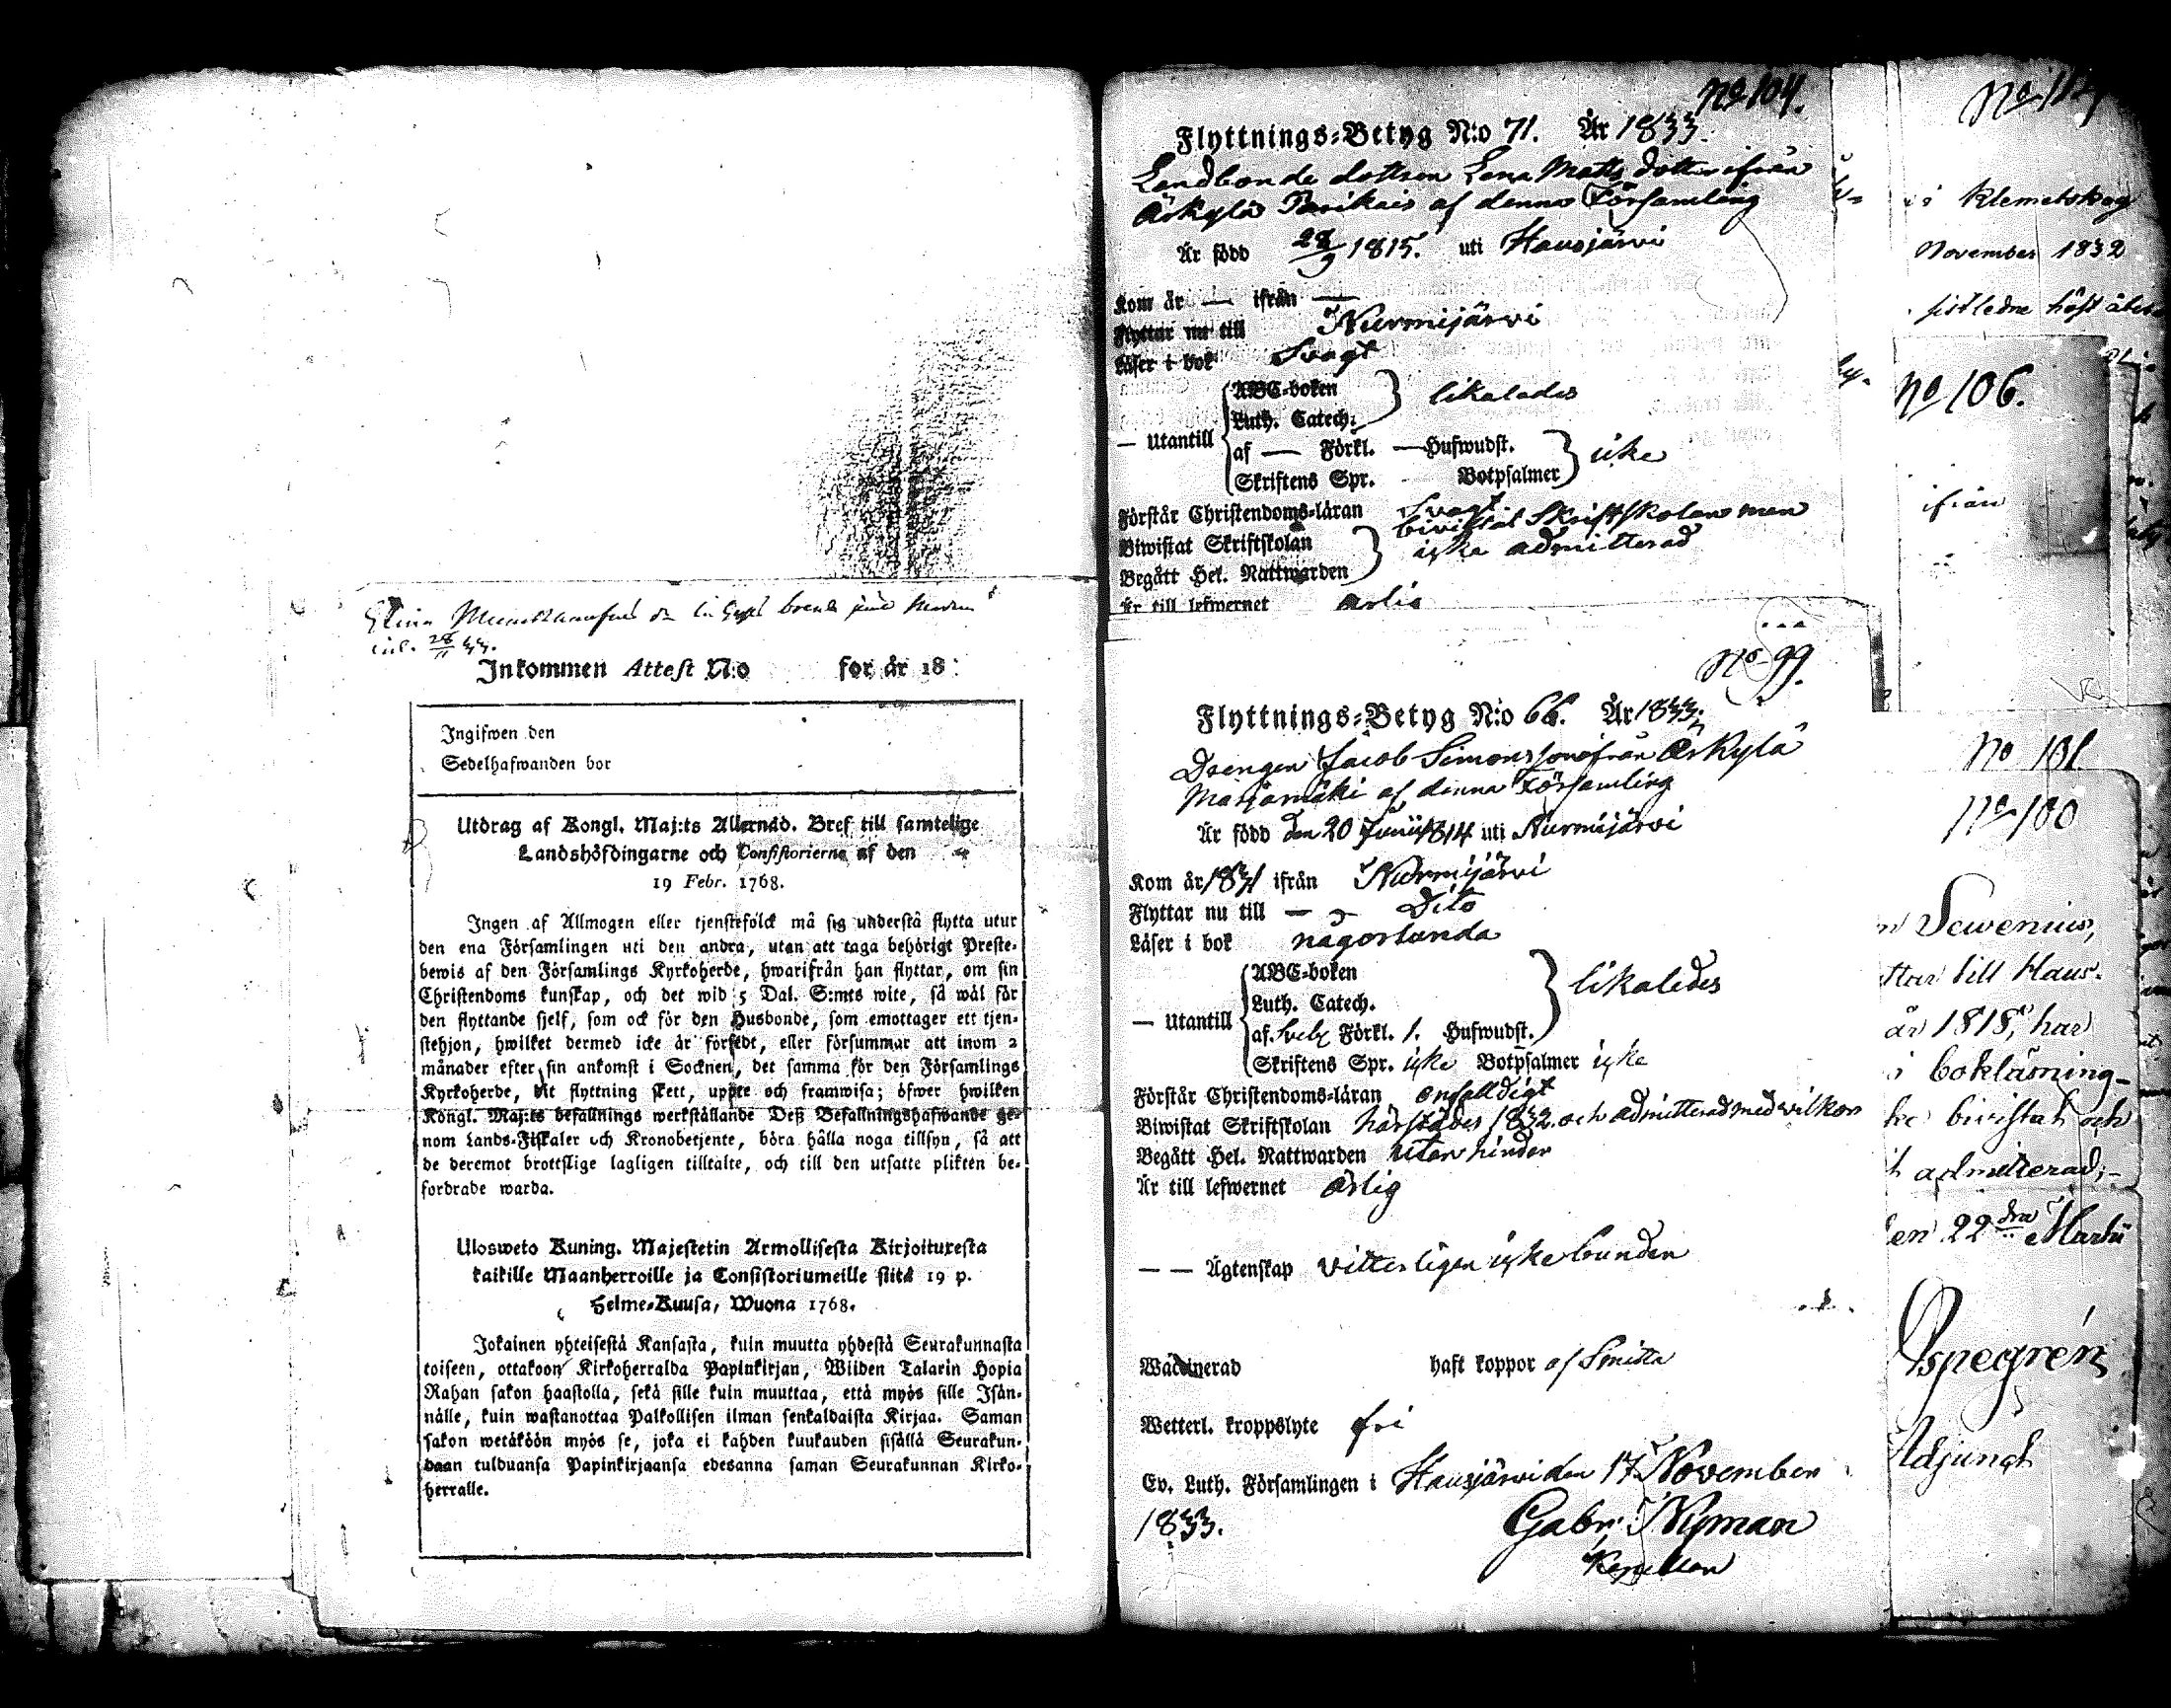 inl. 28/11 33.
Inkommen Attest N:o for år 18
Ingifwen den
Sedelhafwanden bor
Utdrag af Kongl. Maj:ts Allernåd. Bref till samtelige
Landshöfdingarne och Consistorierne af den
19 Febr. 1768.
Ingen af Allmogen eller tjenstefölck må sig understå flytta utur
den ena Församlingen uti den andra, utan att taga behörigt Preste-
bewis af den Församlings Kyrkoherde, hwarifrån han flyttar, om sin
Christendoms kunskap, och det wid 5 Dal. S:mts wite, så wäl för
den flyttande sjelf, som ock för den Husbonde, som emottager ett tjen-
stehjon, hwilket dermed icke är försedt, eller försummar att inom 2
månader efter sin ankomst i Socknen, det samma för den Församlings
Kyrkoherde, dit flyttning skett, uppte och framwisa; öfwer hwilken
Kongl. Maj:ts befallnings werkställande Deß Befallningshafwande ge-
nom Lands-Fiskaler och Kronobetjente, böra hålla noga tillsyn, så att
de deremot brottslige lagligen tilltalte, och till den utsatte plikten be-
fordrade warda.
Ulosweto Kuning. Majestetin Armollisesta Kirjoituxesta
kaikille Maanherroille ja Consistoriumeille siitä 19 p.
Helme-Kuusa, Wuona 1768.
Jokainen yhteisestä Kansasta, kuin muutta yhdestä Seurakunnasta
toiseen, ottakoon Kirkoherralda Papinkirjan, Wiiden Talarin Hopia
Rahan sakon haastolla, sekä sille kuin muuttaa, että myös sille Isän-
nälle, kuin wastanottaa Palkollisen ilman senkaldaista Kirjaa. Saman
sakon wetäköön myös se, joka ei kahden kuukauden sisällä Seurakun-
daan tulduansa Papinkirjaansa edesanna saman Seurakunnan Kirko-
herralle.
No 104.
Flyttnings-Betyg N:o 71. År 1833.
Landbonde dottren Lena Matts dotter ifrån
Årkylä Parikais af denna Församling
Är född 28/9 1815. uti Hausjärvi
Kom år — ifrån —
Flyttar nu till Nurmijärvi
Läser i bok Svagt
— Utantill
ABC-boken
Luth. Catech. likaledes
af — Förkl. — Hufwudst.
Skriftens Spr. Botpsalmer icke
Förstår Christendoms-läran Svagt
Biwistat Skriftskolan bivistat Skriftskolan men
Begått Hel. Nattwarden icke admitterad
Är till lefwernet ärlig
No 99.
Flyttnings-Betyg N:o 66. År 1833.
Drengen Jacob Simonsson ifrån Årkylä
Marjamäki af denna Församling
Är född den 20 Junii 1814 uti Nurmijärvi
Kom år 1831 ifrån Nurmijärvi
Flyttar nu till — Dito
Läser i bok någorlunda
— Utantill
ABC-boken
Luth. Catech. likaledes
af Sveb. Förkl. 1. Hufwudst.
Skriftens Spr. icke Botpsalmer icke
Förstår Christendoms-läran enfalldigt
Biwistat Skriftskolan härstädes 1832 och admitterad med vilkor
Begått Hel. Nattwarden utan hinder
Är till lefwernet ärlig
— — Ägtenskap vitterligen icke bunden
Waccinerad haft koppor af Smitta
Wetterl. kroppslyte fri
Ev. Luth. Församlingen i Hausjärvi den 17 November
1833.
Gabr. Nyman
Kapellan
Klemetskog
November 1832
sistledne höst
No 106.
ifrån
No 131
No 100
Sewenius,
till Haus-
år 1818, har
i bokläsning-
bivistat och
admitterad;-
den 22dra Martii
Aspegrén
Adjunct